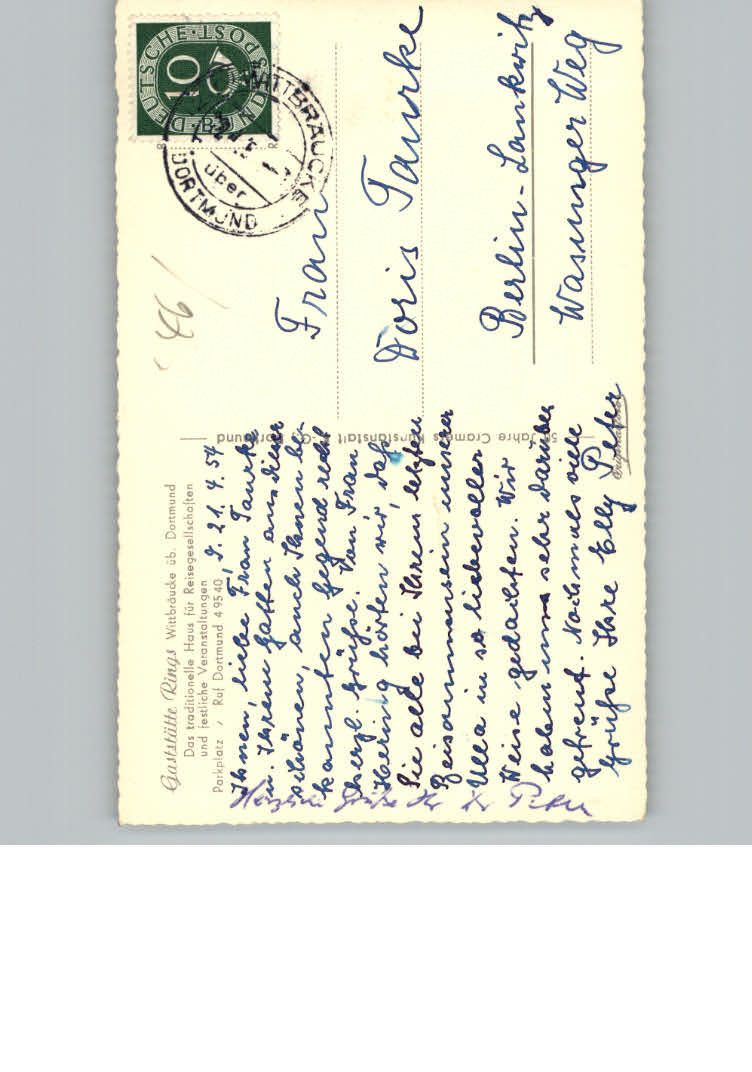 Gaststätte Rings Wittbräucke üb. Dortmund
Das traditionelle Haus für Reisegesellschaften
und festliche Veranstaltungen
Parkplatz / Ruf Dortmund 4 95 40
, d. 21. 4. 54
Ihnen, liebe Frau Taurke
u. Ihrem Gatten aus dieser
schönen, auch Ihnen be-
kannten Gegend recht
herzl. Grüße. Von Frau
hörten wir, daß
Sie alle bei Ihrem letzten
Beisammensein unserer
Ulla in so liebevoller
Weise gedachten. Wir
haben uns sehr darüber
gefreut. Nochmals viele
Grüße Ihre Elly Peter
Herzliche Grüße Ihr Dr. Peter
50 Jahre Cramers Kunstanstalt K.-G. Dortmund
DEUTSCHE·BUNDESPOST
10
WITTBRÄUCKE
über
DORTMUND
46
Frau
Doris Taurke
Berlin-Lankwitz
Wasunger Weg